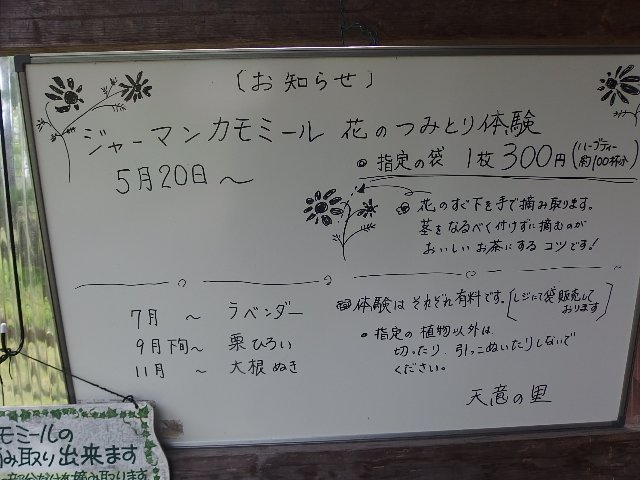 〔お知らせ〕
ジャーマンカモミール 花のつみとり体験
5月20日〜
指定の袋 1枚300円(ハーブティー約100杯分)
花のすぐ下を手で摘み取ります。
茎をなるべく付けずに摘むのが
おいしいお茶にするコツです!
7月 〜 ラベンダー
9月下旬〜 栗ひろい
11月 〜 大根ぬき
体験はそれぞれ有料です。〔レジにて袋販売しております〕
指定の植物以外は、
切ったり、引っこぬいたりしないで
ください。
天竜の里
モミールの
み取り出来ます